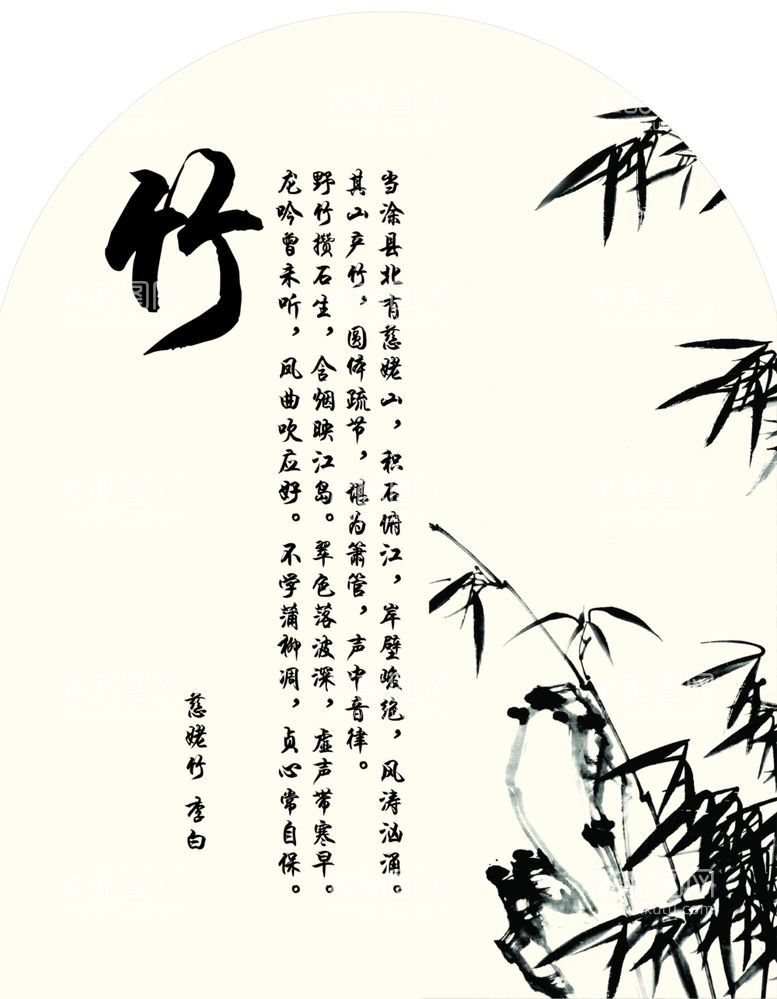 竹
当涂县北有慈姥山，积石俯江，岸壁峻绝，风涛汹涌。
其山产竹，圆体疏节，堪为箫管，声中音律。
野竹攒石生，含烟映江岛。翠色落波深，虚声带寒早。
龙吟曾未听，凤曲吹应好。不学蒲柳凋，贞心常自保。
慈姥竹 李白